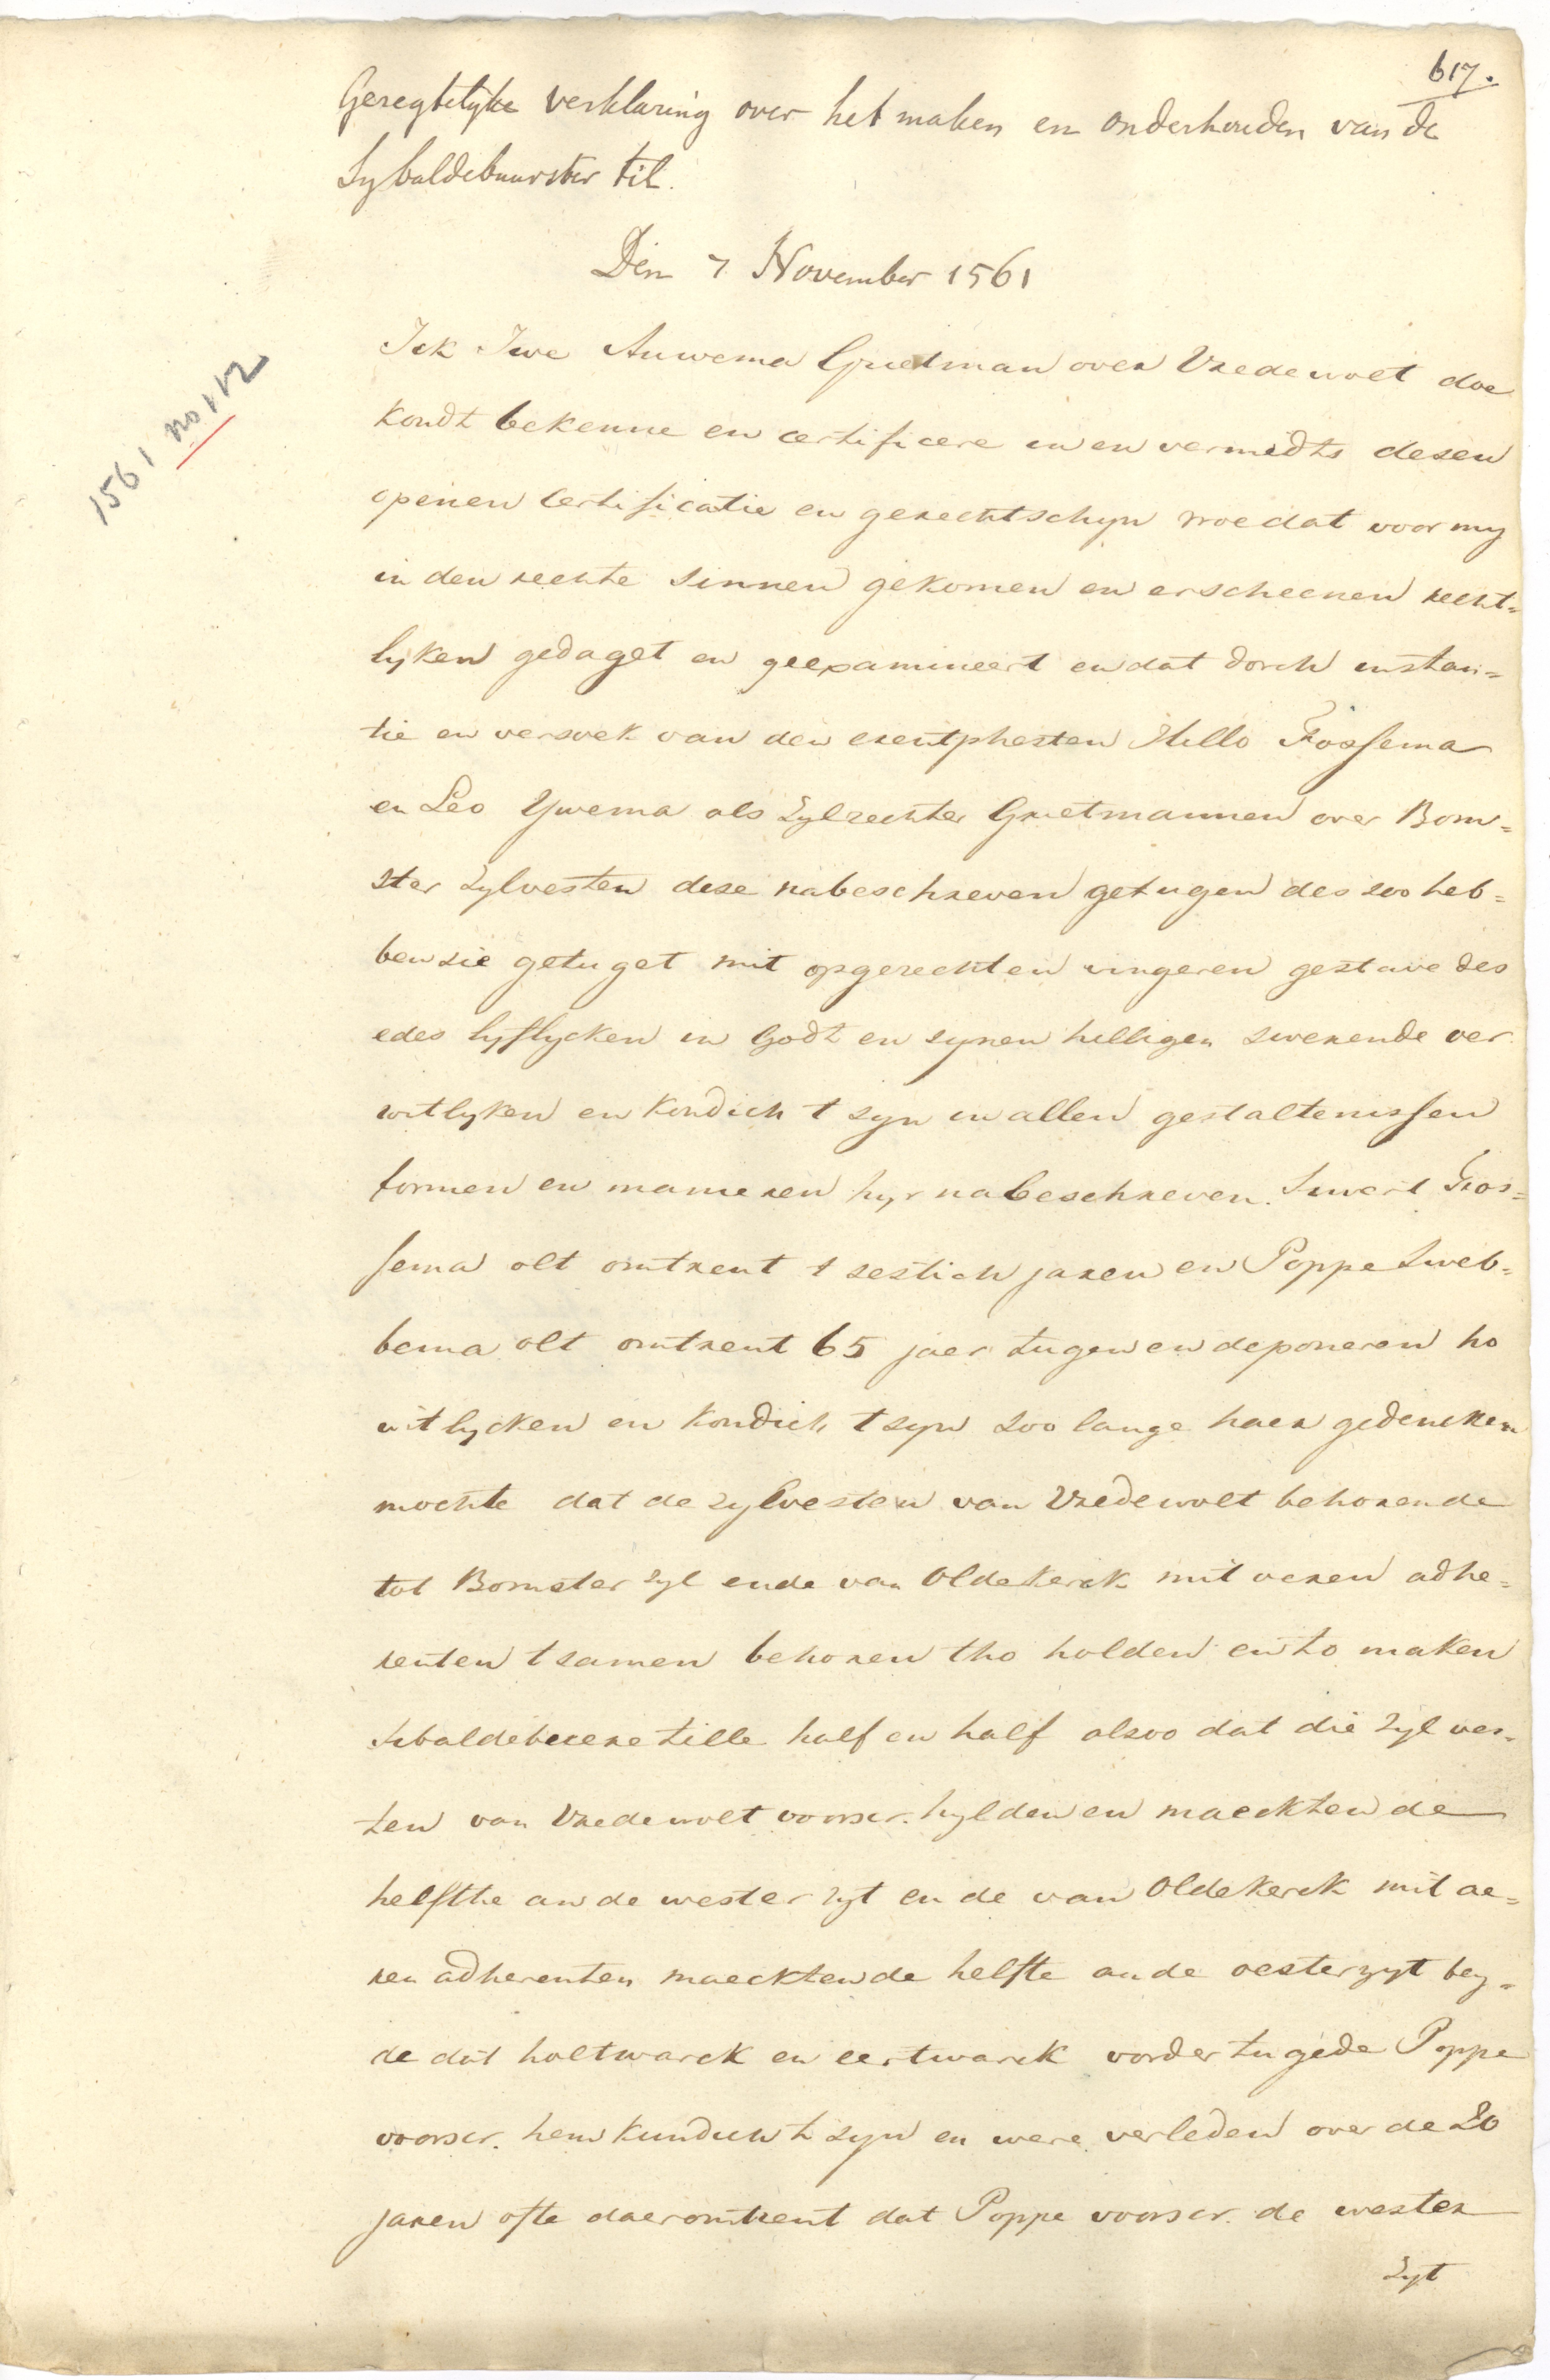 617.
Geregtelijke verklaring over het maken en onderhouden van de
Sybaldebuurster til.
Den 7 November 1561
1561 no 112
Ick Iwe Auwema Grietman over Vredewolt doe
kondt bekenne en certificere in en vermidts desen
openen Certificatie en gerechtschyn woe dat voor my
in den rechte sinnen gekomen en erscheenen recht=
lyken gedaget en geexamineert en dat dorch instan=
tie en versoek van den erentphesten Hillo Fossema
en Leo Ywema als Zylrechter Grietmannen over Bom=
ster Zylvesten dese nabeschreven getugen des soo heb=
ben sie getuget mit opgerechten vingeren gestave des
edes lyflycken in Godt en synen hilligen swerende ver
witlyken en kondich t syn in allen gestaltenissen
formen en manieren hyr nabeschreven. Siwert Gos=
sema olt omtrent t sestich jaren en Poppe Sweb=
bema olt omtrent 65 jaer tugen en deponeren ho
witlycken en kondich t syn soo lange haer gedencken
mochte dat de zylvesten van Vredewolt behorende
tot Bomster zyl ende van Oldekerck mit oeren adhe=
renten t samen behoren tho holden en to maken
Sibaldebuere tille half en half alsoo dat die Zylves=
ten van Vredewolt voorscr. hylden en maeckten de
helfthe an de wester zyt en de van Oldekerck mit oe=
ren adherenten maeckten de helfte an de oester zyt bey=
de dat holtwarck en eertwarck vorder tugede Poppe
voorscr. hem kundich t syn en were verleden over de 20
jaren ofte daeromtrent dat Poppe voorscr. de wester
Zyt